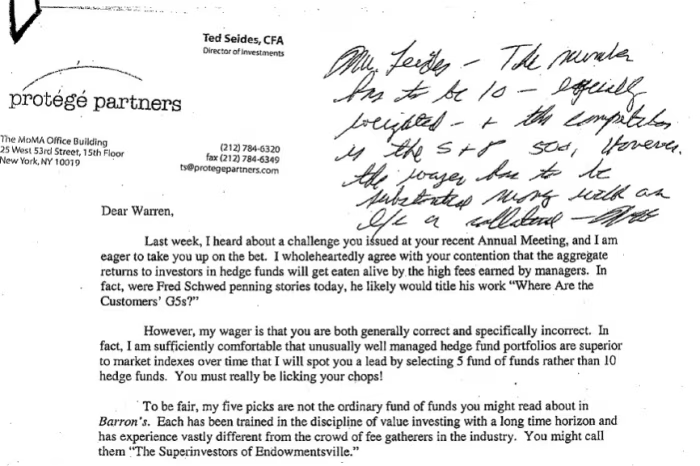 Ted Seides, CFA
Director of Investments
Mr. Seides – The number
has to be 10 – equally
weighted – + the competitor
is the S+P 500, However,
the wager has to be
substantial money with an
l/c as collateral –
protégé partners
The MoMA Office Building
25 West 53rd Street, 15th Floor
New York, NY 10019
(212) 784-6320
fax (212) 784-6349
ts@protegepartners.com
Dear Warren,
Last week, I heard about a challenge you issued at your recent Annual Meeting, and I am
eager to take you up on the bet. I wholeheartedly agree with your contention that the aggregate
returns to investors in hedge funds will get eaten alive by the high fees earned by managers. In
fact, were Fred Schwed penning stories today, he likely would title his work “Where Are the
Customers’ G5s?”
However, my wager is that you are both generally correct and specifically incorrect. In
fact, I am sufficiently comfortable that unusually well managed hedge fund portfolios are superior
to market indexes over time that I will spot you a lead by selecting 5 fund of funds rather than 10
hedge funds. You must really be licking your chops!
To be fair, my five picks are not the ordinary fund of funds you might read about in
Barron’s. Each has been trained in the discipline of value investing with a long time horizon and
has experience vastly different from the crowd of fee gatherers in the industry. You might call
them “The Superinvestors of Endowmentsville.”